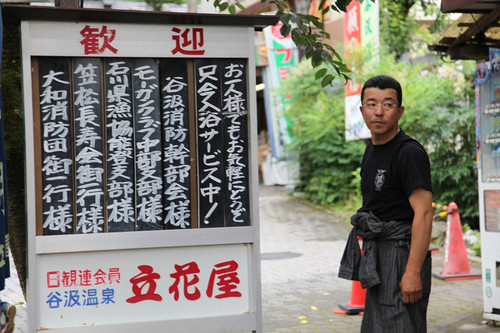 歓迎
お一人様でもお気軽にどうぞ
只今入浴サービス中!
谷汲消防幹部会様
モガクラブ中部支部様
石川県漁協能登支部様
笠松長寿会御一行様
大和消防団御一行様
日観連会員
谷汲温泉
立花屋